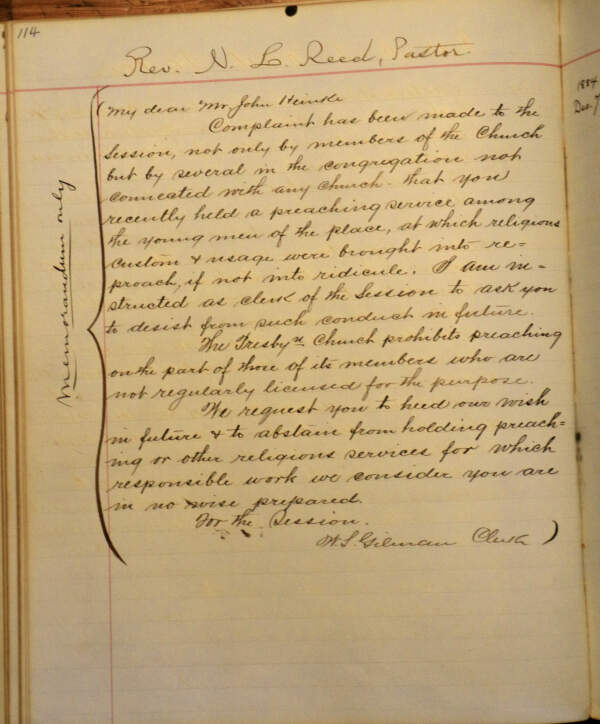 114
Rev. N. L. Reed, Pastor.
Memorandum only
(My dear Mr. John Heinke
Complaint has been made to the
Session, not only by members of the Church
but by several in the congregation not
connected with any Church - that you
recently held a preaching service among
the young men of the place, at which religious
custom & usage were brought into re-
proach, if not into ridicule. I am in-
structed as clerk of the Session to ask you
to desist from such conduct in future.
The Presbyn Church prohibits preaching
on the part of those of its members who are
not regularly licensed for the purpose.
We request you to heed our wish
in future & to abstain from holding preach=
ing or other religious services for which
responsible work we consider you are
in no wise prepared.
For the Session.
W. S. Gilman Clerk )
1884
Dec. 7